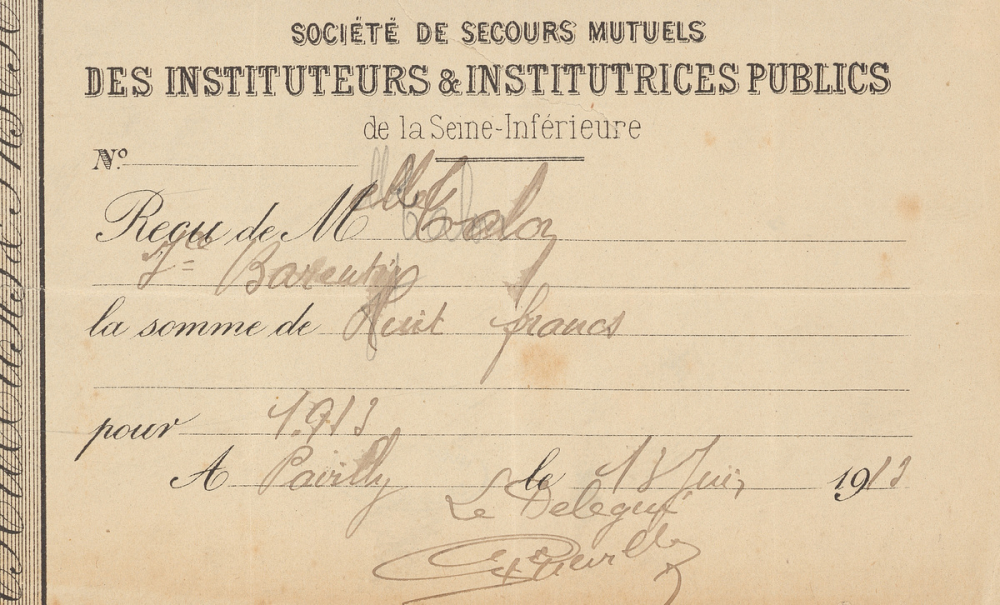 SOCIÉTÉ DE SECOURS MUTUELS
DES INSTITUTEURS & INSTITUTRICES PUBLICS
de la Seine-Inférieure
N°
Reçu de Mlle
Barentin
la somme de Huit francs
pour 1913
A Pavilly le 13 Juin 1913
Le Délégué